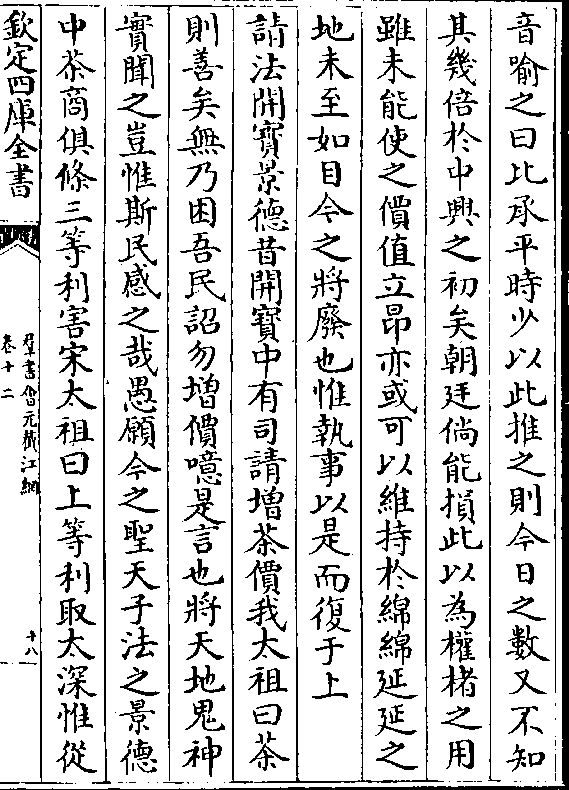 音喻之曰比承平時少以此推之則今日之數又不知
其幾倍於中興之初矣朝廷倘能損此以為權楮之用
雖未能使之價值立昂亦或可以維持於綿綿延延之
地未至如目今之將廢也惟執事以是而復于上
請法開寶景德昔開寶中有司請增茶價我太祖曰茶
則善矣無乃困吾民詔勿增價噫是言也將天地鬼神
實聞之豈惟斯民感之哉愚願今之聖天子法之景德
中茶商俱條三等利害宋太祖曰上等利取太深惟從
欽定四庫全書
羣書會元截江網
卷十二
十八